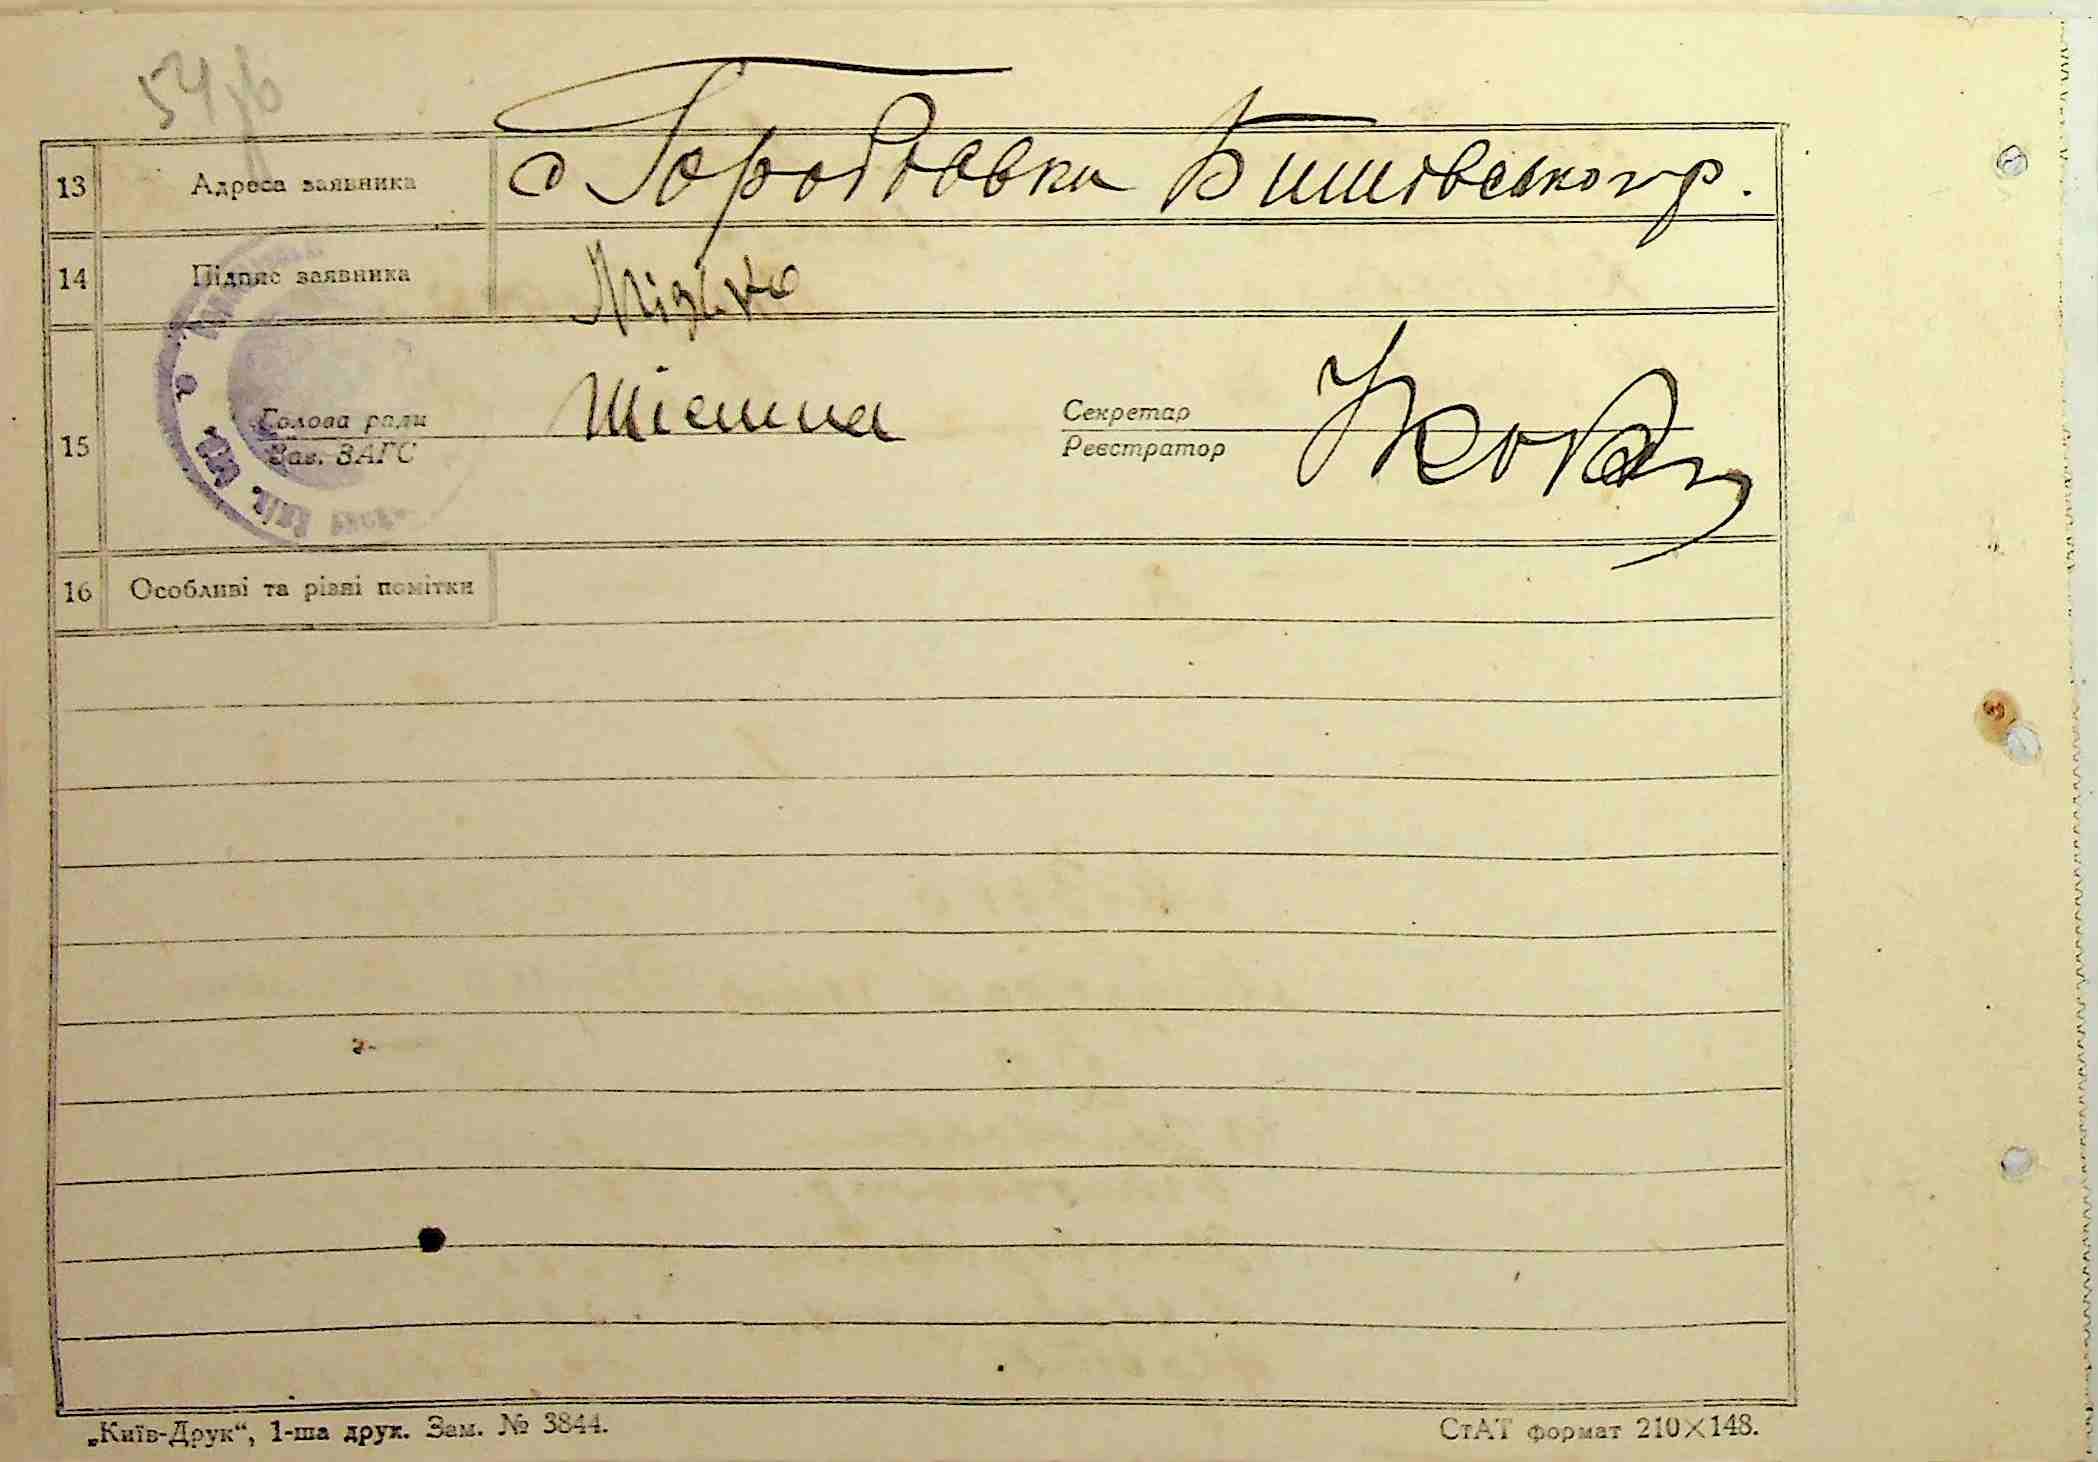 13 Адреса заявника с Горобіовка Бишівського р.
14 Підпис заявника
15 Голова ради Секретар
Зав. ЗАГС Реєстратор
16 Особливі та різні помітки
„Київ-Друк“, 1-ша друк. Зам. № 3844. СтАТ формат 210×148.